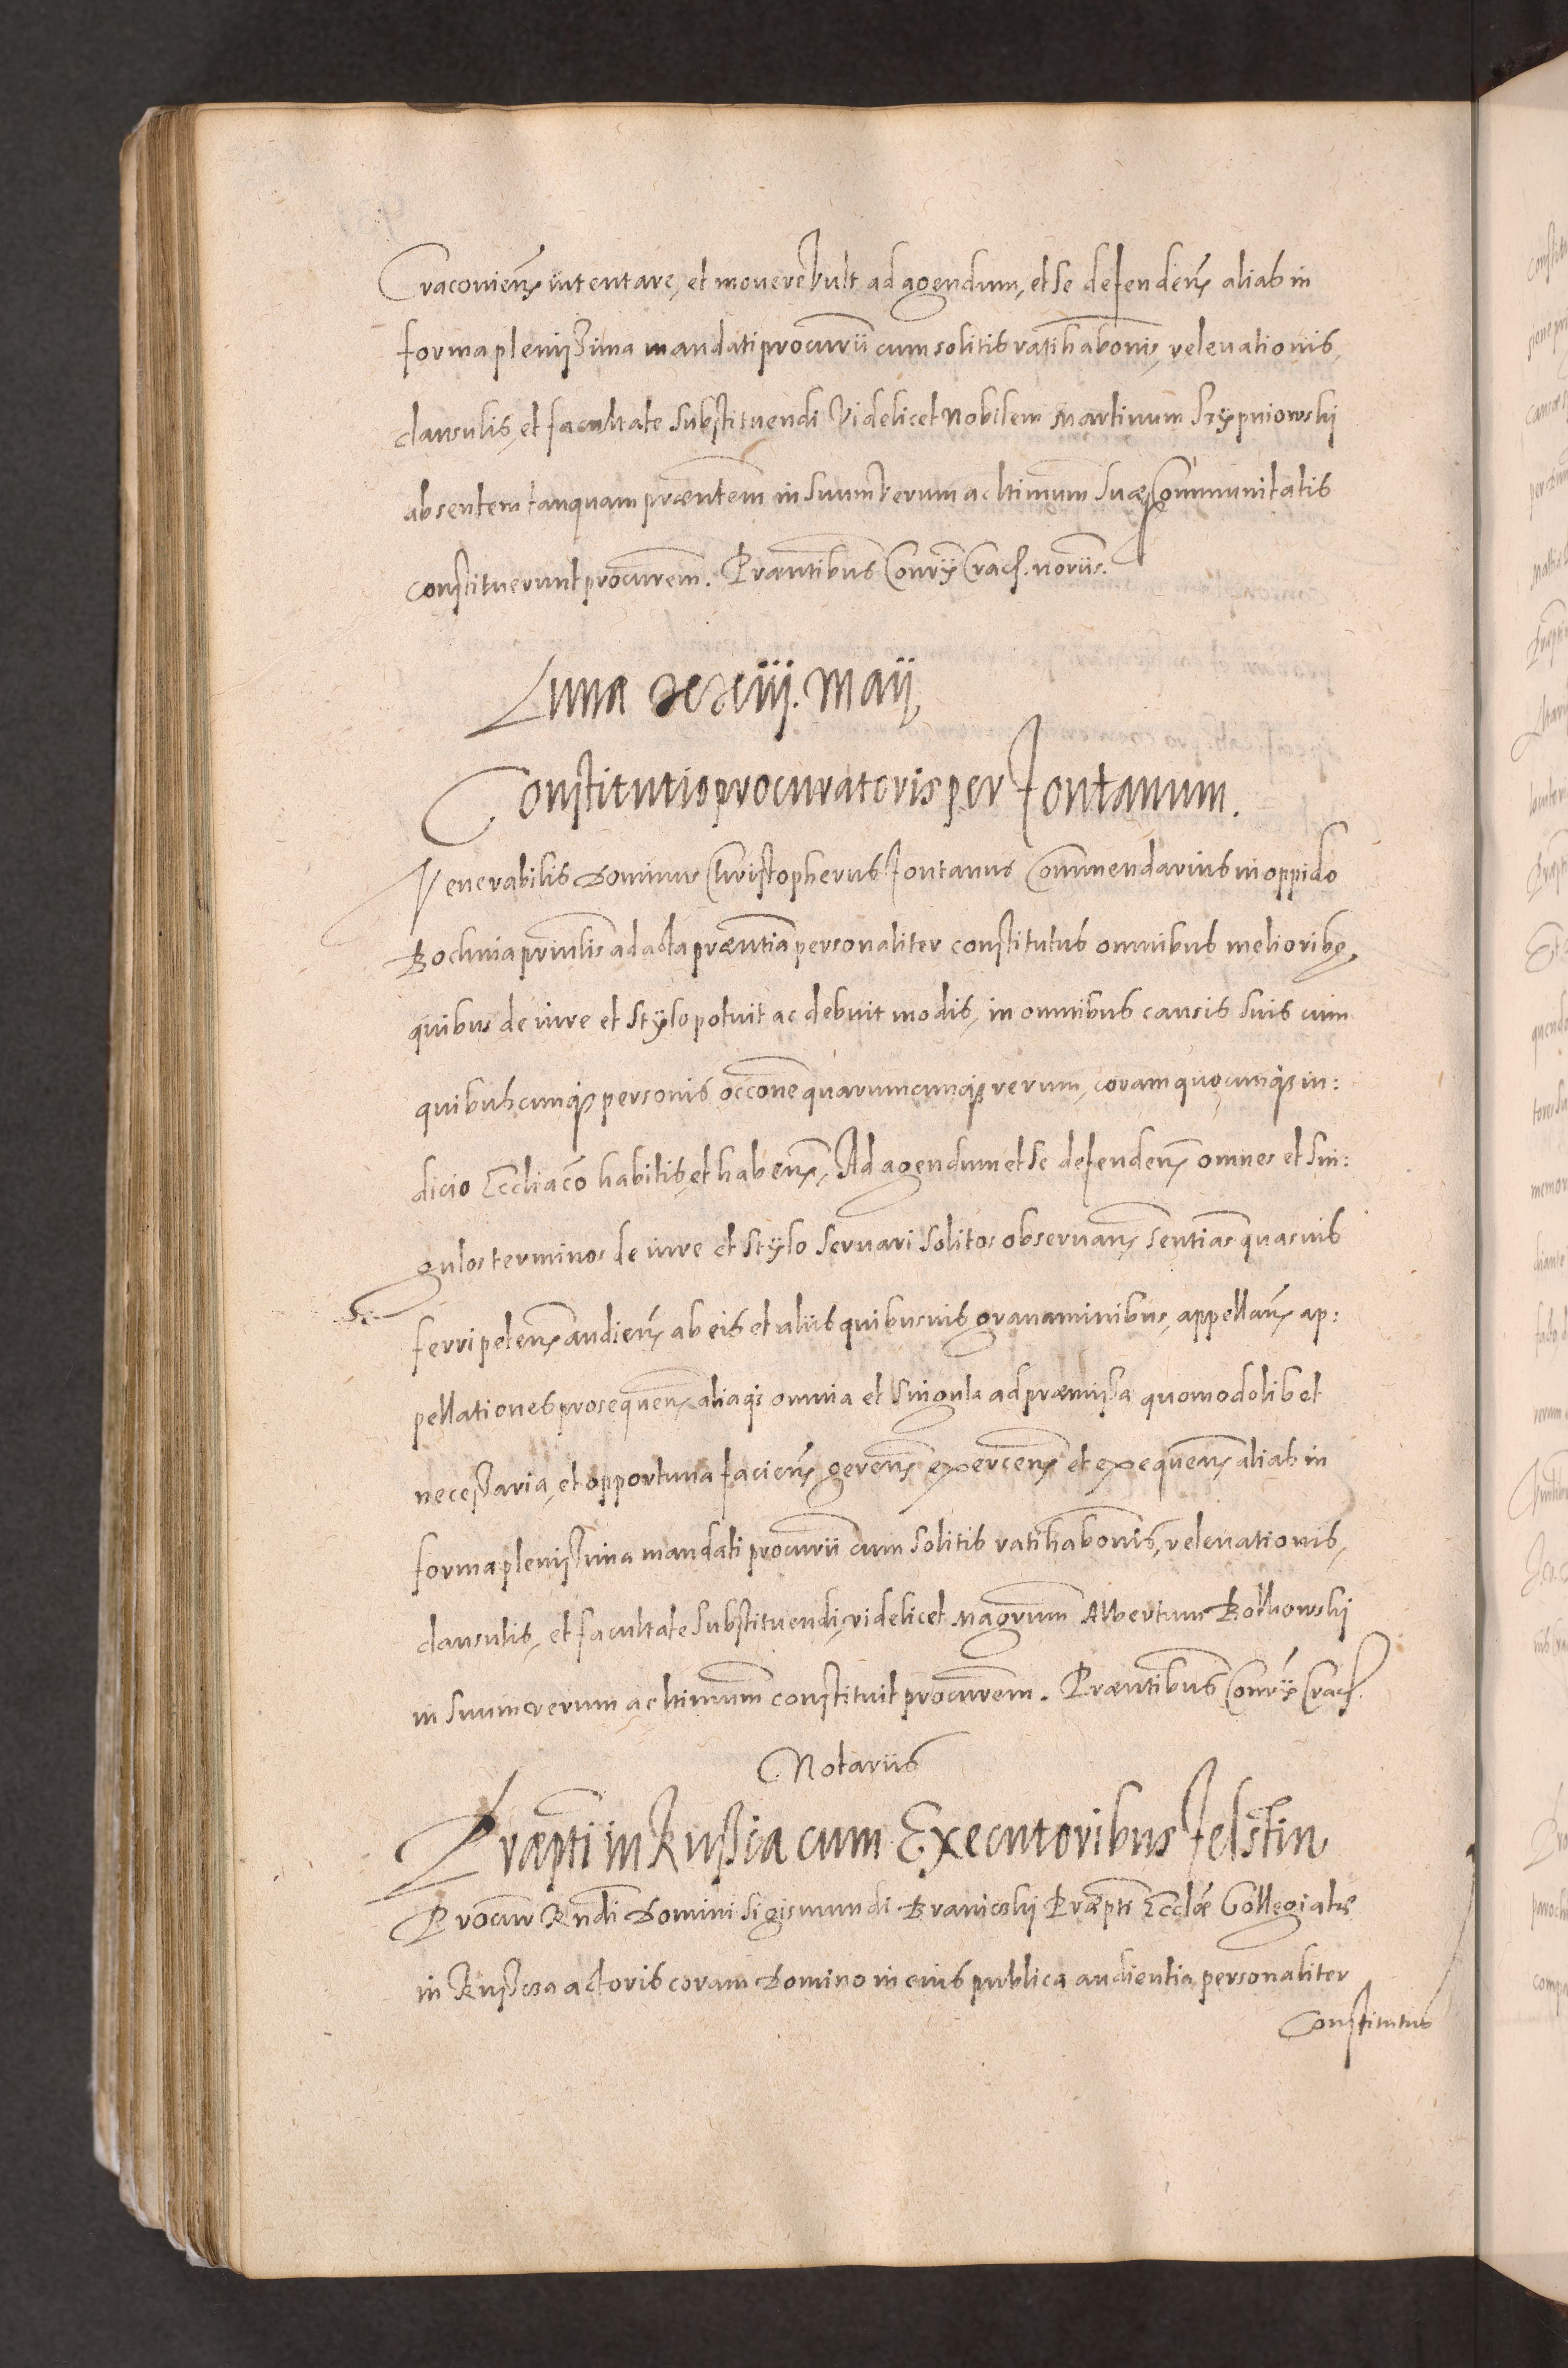 Craconiens intentare, et mouere Vult ad agendum, et se defendens alias in
forma plenissima mandati procurii cum solitis ratihabonis, releuationis,
clausulis, et facultate substituendi Videlicet Nobilem Martinum Szypniowski
absentem tanquam præntem in suum Verum ac ltimum suæ Communitatis
constituerunt procurem. Præntibus Conrÿ Cracz. noriis.
Luna xxiij. Maij,
Constitutio procuratoris per Fontanum.
Venerabilis Dominus Christopherus Fontanus Commendarius in oppido
Bochnia prinlis ad acta præntia personaliter constitutus omnibus melioribq
quibus de iure et stÿlo potuit ac debuit modis, in omnibus causis suis cum
quibuscunq personis occone quarumcunq rerum, coram quocunq iu:
dicio Eccliaco habitis, et habens, Ad agendum et se defendens omnes et sin:
gulos terminos de iure et stÿlo seruari solitos obseruans sentias quasuis
ferri petens audiens ab eis et aliis quibusuis grauaminibus, appellans ap:
pellationes prosequens, aliaq omnia et singula ad præmissa quomodolibet
necessaria, et opportuna faciens gerens exercens et exequens alias in
forma plenissima mandati procurii cum solitis ratihabonis, releuationis,
clausulis, et facultate substituendi, videlicet Magrum Albertum Bolkowski
in suum verum ac ltimum constituit procurem. Præntibus Conrÿ Cracz
Notariis
Præpti in Russia cum Executoribus Felstin
Procur Rndi Domini Sigismundi Branicski Præpti Ecclæ Collegiatæ
in Russcza actoris coram Domino in eius publica audientia personaliter
Constitutus